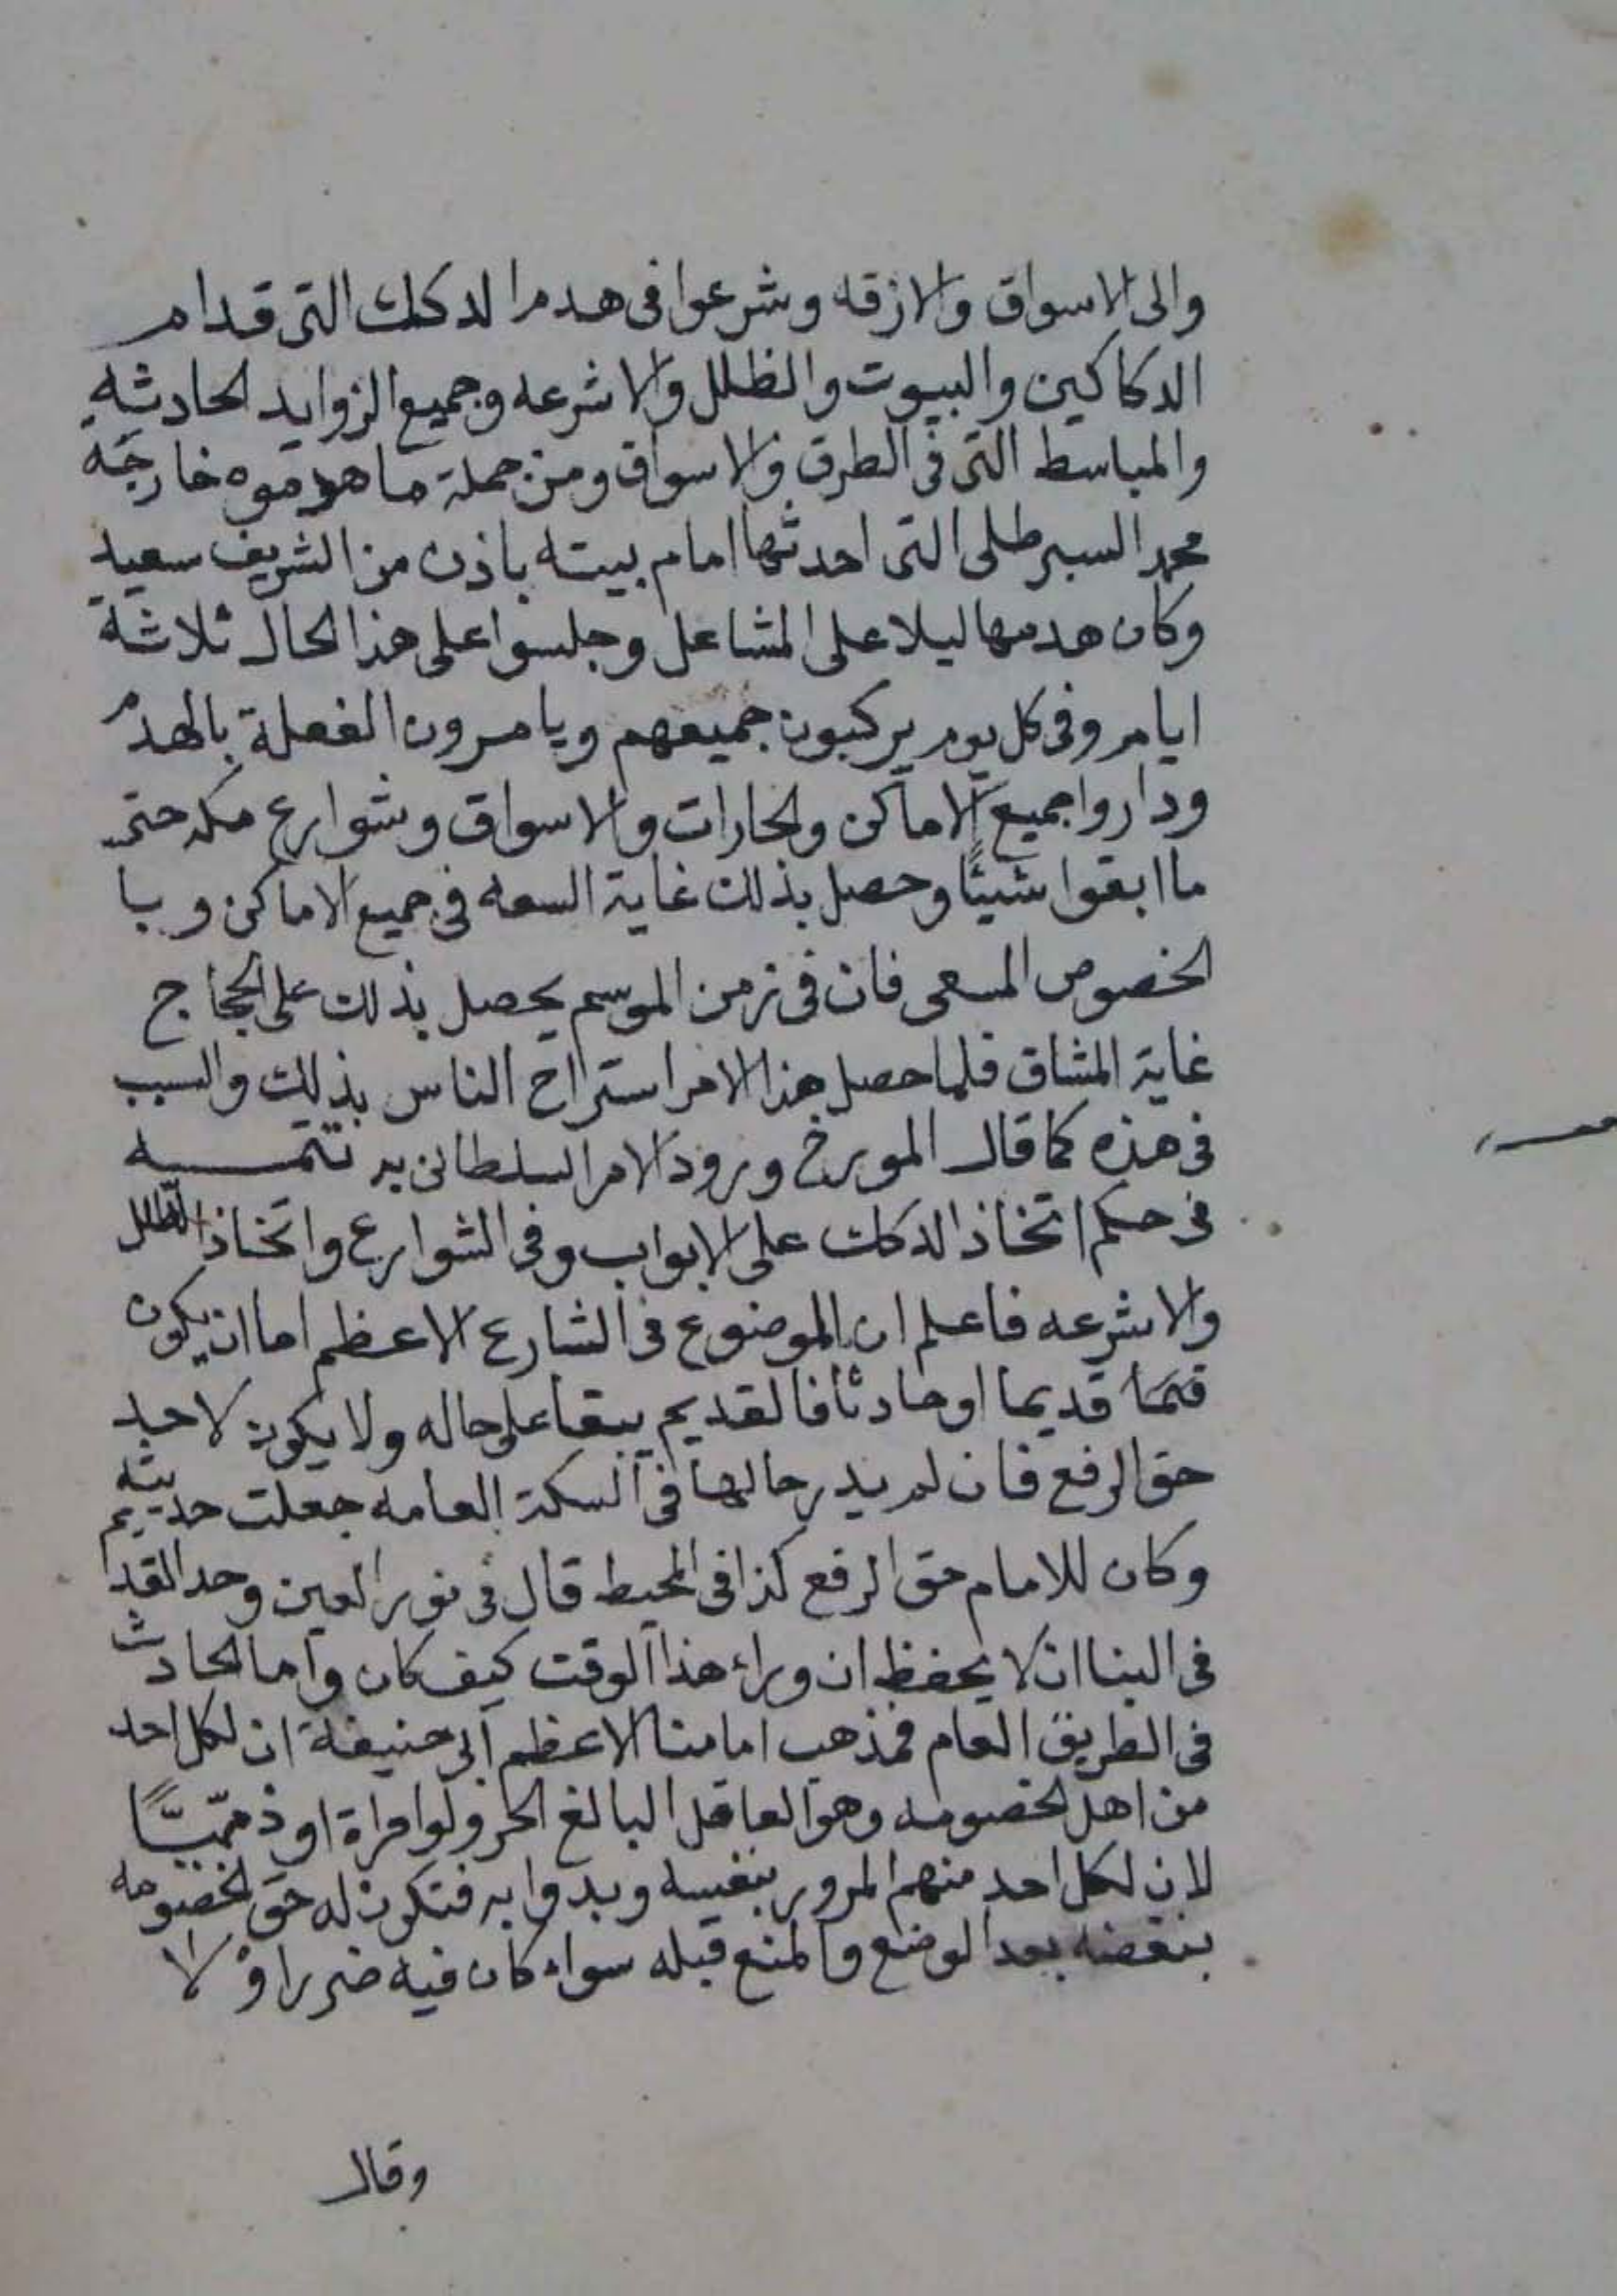 والى الاسواق والازقه وشرعوا فى هدم الدكك التى قدام
الدكاكين والبيوت والظلل والاشرعه وجميع الزوايد الحادثه
والمباسط التى فى الطرق والاسواق ومن جملة ما هدموه خارجة
محمد السبرطلى التى احدثها امام بيته باذن من الشريف سعيد
وكان هدمها ليلا على المشاعل وجلسوا على هذا الحال ثلاثة
ايام وفى كل يوم يركبون جميعهم ويامرون الفعلة بالهدم
وداروا جميع الاماكن والحارات والاسواق وشوارع مكه حتى
ما ابقوا شيئًا وحصل بذلك غاية السعه فى جميع الاماكن وبا
الخصوص المسعى فان فى زمن الموسم يحصل بذلك على الحجاج
غاية المشاق فلما حصل هذا الامر استراح الناس بذلك والسبب
فى هذه كما قال المورخ ورود الامر السلطانى به تتمـــه
فى حكم اتخاذ الدكك على الابواب وفى الشوارع واتخاذ الظلل
والاشرعه فاعلم ان الموضوع فى الشارع الاعظم اما ان يكون
قديما اوحادثا فالقديم يبقا على حاله ولا يكون لاحد
حق الرفع فان لم يدر حالها فى السكة العامه جعلت حديثه
وكان للامام حق الرفع كذا فى المحيط قال فى نور العين وحد القديم
فى البنا ان لا يحفظ ان وراء هذا الوقت كيف كان واما الحادث
فى الطريق العام فمذهب امامنا الاعظم ابى حنيفة ان لكل احد
من اهل الخصومه وهو العاقل البالغ الحر ولو امراة او ذميًّا
لان لكل احد منهم المرور بنفسه وبدوابه فتكون له حق الخصومه
بنقضه بعد الوضع والمنع قبله سواء كان فيه ضرر اوْ لا
وقال